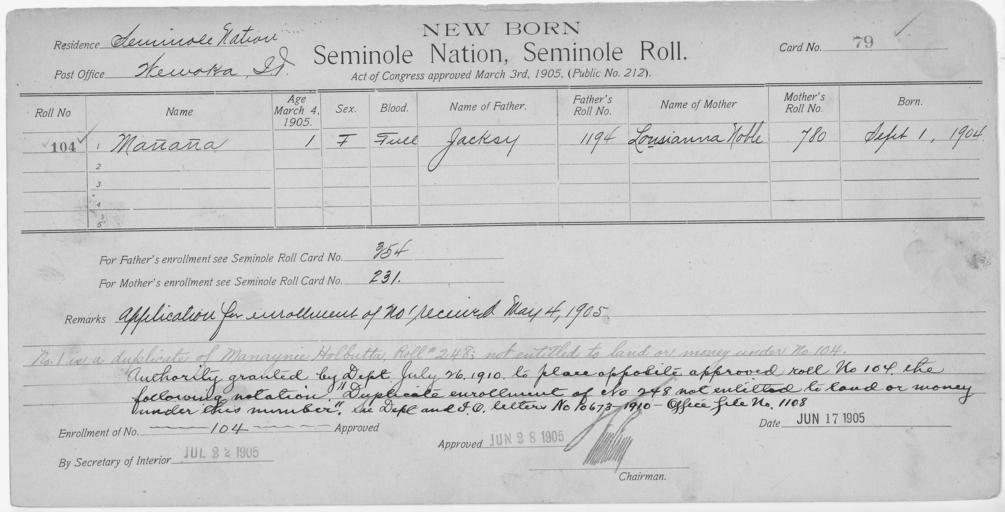 NEW BORN
Residence Seminole Nation
Seminole Nation, Seminole Roll.
Card No. 79
Post Office Wewoka, I.T.
Act of Congress approved March 3rd, 1905, (Public No. 212).
Roll No Name Age March 4, 1905. Sex. Blood. Name of Father. Father's Roll No. Name of Mother Mother's Roll No. Born.
104 1 Mañaña 1 F Full Jacksy 1194 Lousianna Noble 780 Sept 1, 1904
2
3
4
5
For Father's enrollment see Seminole Roll Card No. 354
For Mother's enrollment see Seminole Roll Card No. 231.
Remarks Application for enrollment of No 1 received May 4, 1905.
No. 1 is a duplicate of Manaynie Holbutta, Roll # 248; not entitled to land or money under No. 104.
"Authority granted by Dept July 26, 1910, to place opposite approved roll No 104, the
following notation: "Duplicate enrollment of No 248 not entitled to land or money
under this number". See Dept and I.O. letters No 10673-1910 - Office file No. 1108
Enrollment of No. 104 Approved
Date JUN 17 1905
Approved JUN 28 1905
By Secretary of Interior JUL 22 1905
Chairman.